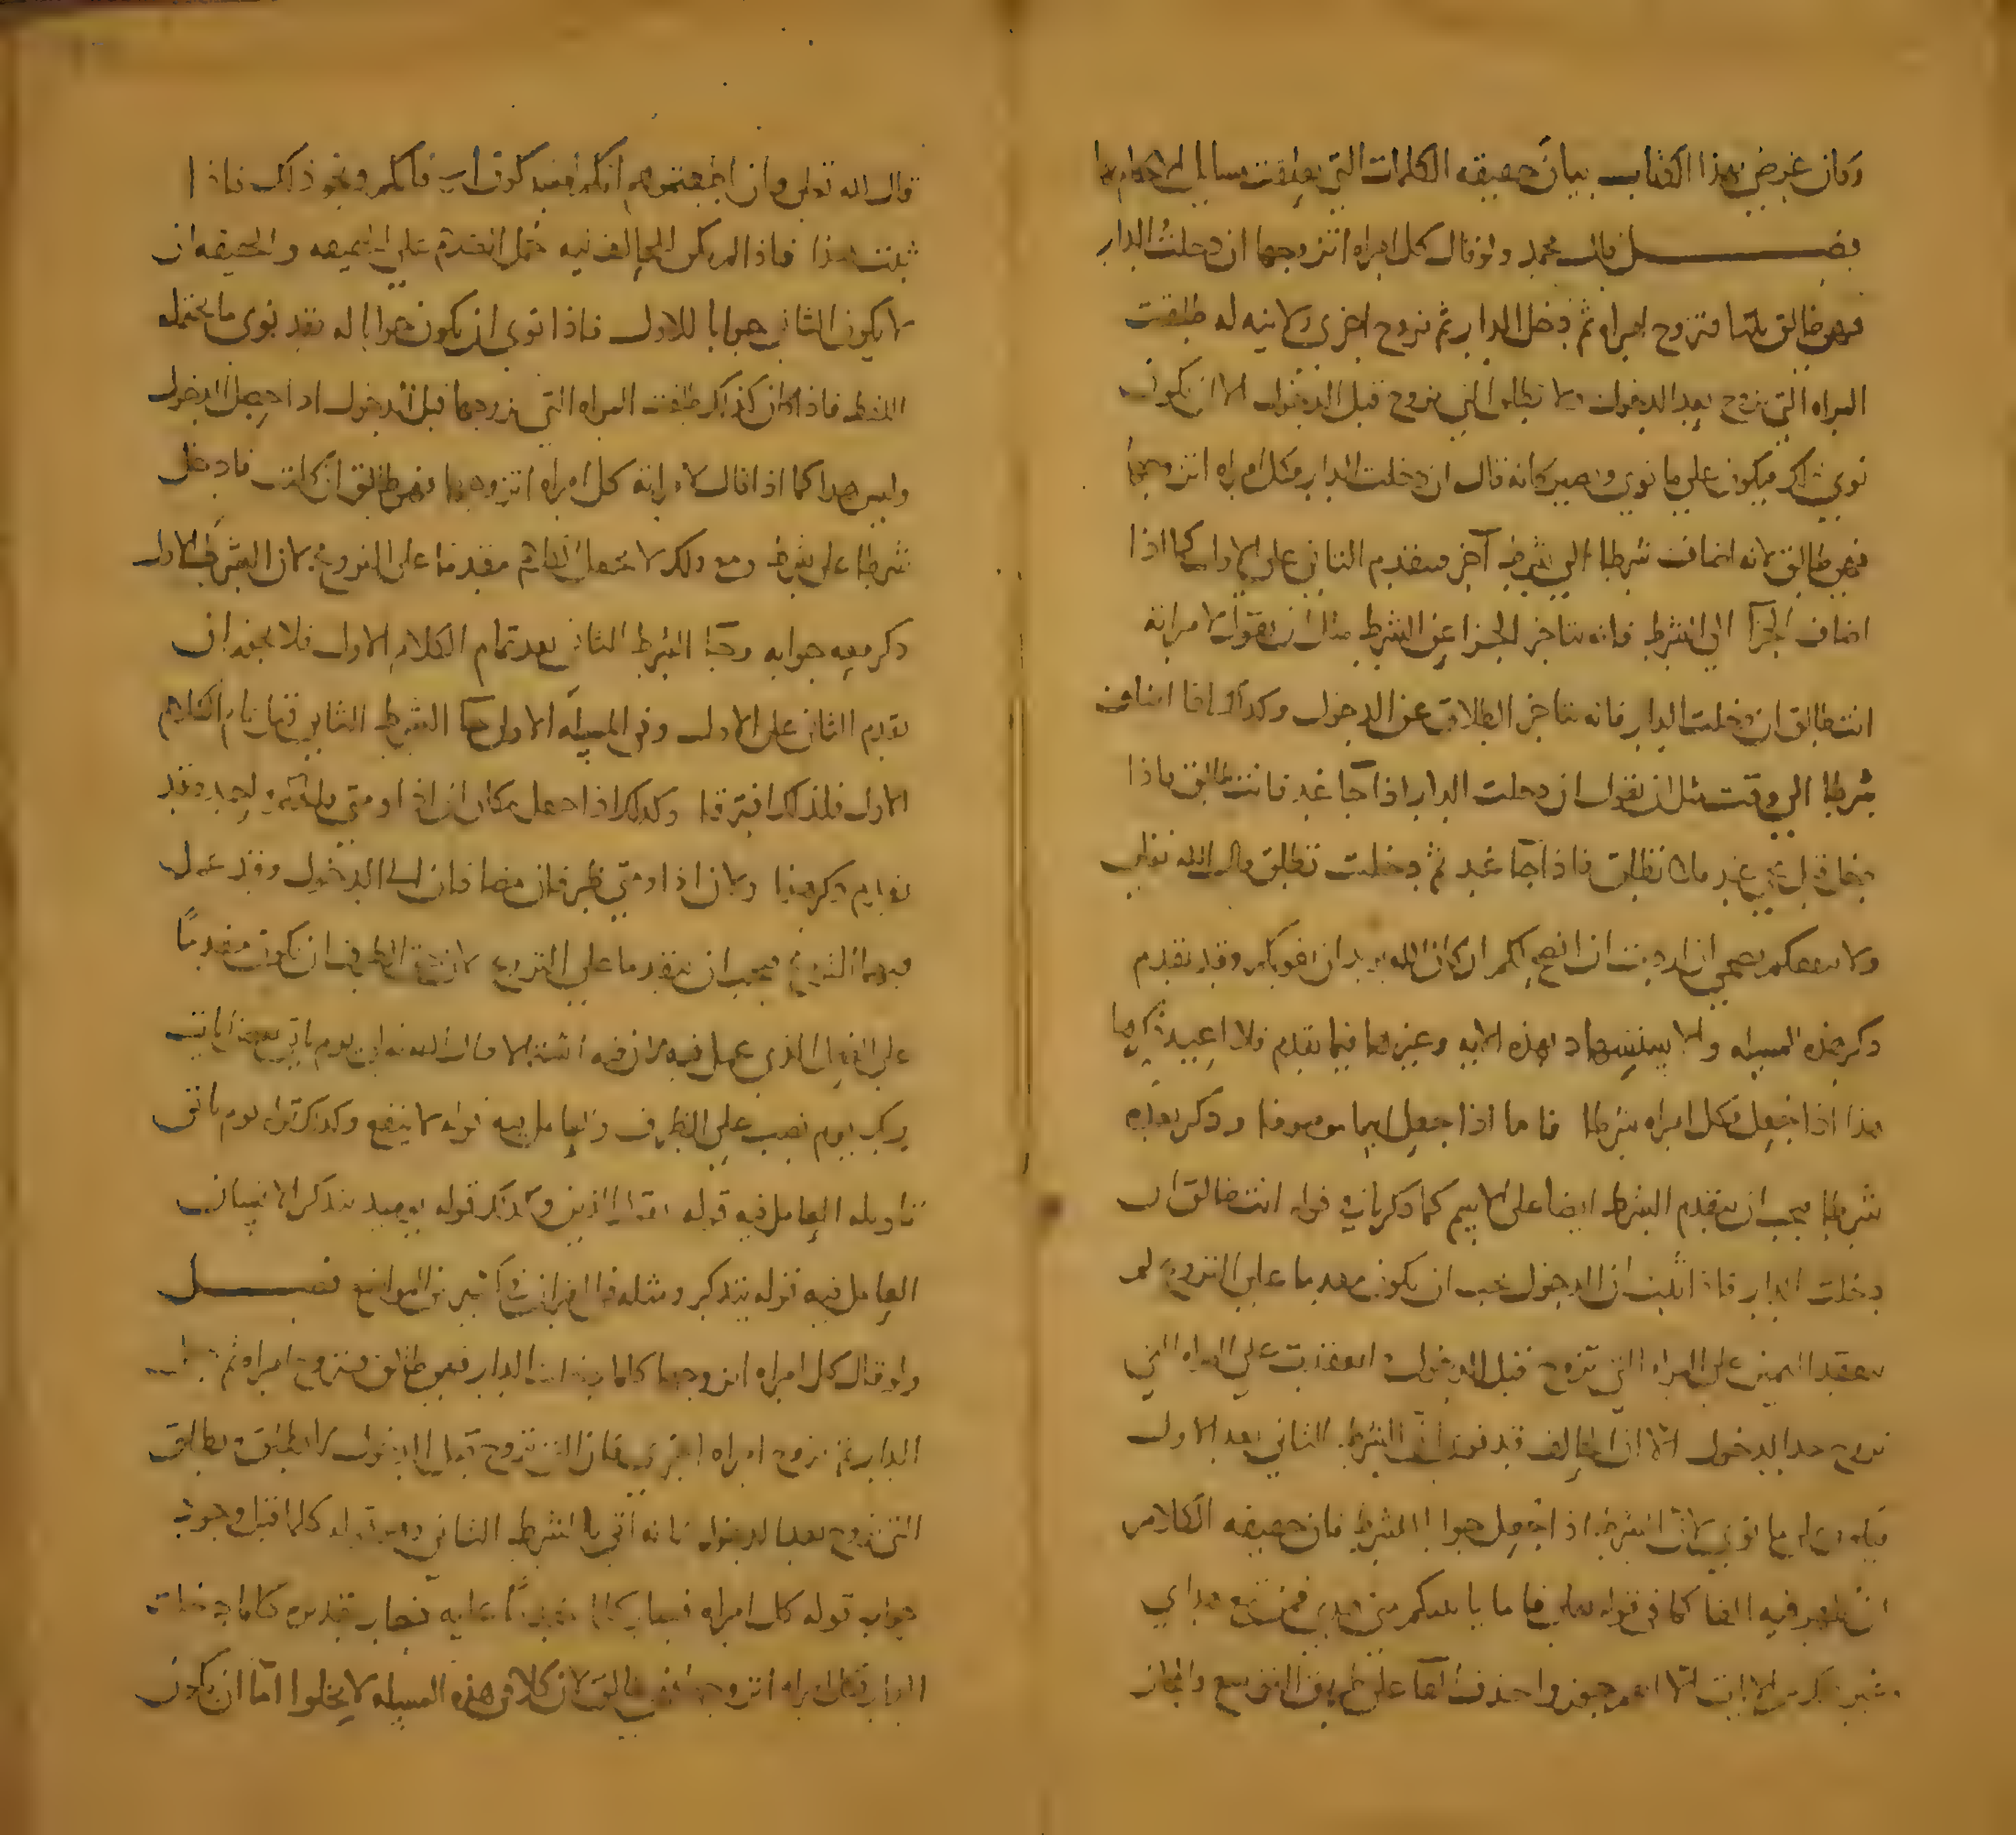 وكان غرض هذا الكتاب بيان حقيقه الكلمات التي تعلقت مسايل الاحكام بها
فصل قال محمد ولو قال كل امراه اتزوجها ان دخلت الدار
فهي طالق ثلثا فتزوج امراه ثم دخل الدار ثم تزوج اخرى ولا نيه له طلقت
المراه التي تزوج بعد الدخول ولا تطلق التي تزوج قبل الدخول الا ان يكون
نوى ذلك فيكون على ما نوى ويصير كانه قال ان دخلت الدار فكل امراه اتزوجها
فهي طالق لانه اضاف شرطا الى شرط آخر فيتقدم الثاني على الاول كما اذا
اضاف الجزآ الى الشرط فانه يتاخر الجزا عن الشرط مثل ان يقول لامراته
انت طالق ان دخلت الدار فانه يتاخر الطلاق عن الدخول وكذلك اذا اضاف
شرطا الى وقت مثل ان يقول ان دخلت الدار اذا جآ غد فانت طالق فاذا
دخلت قبل مجي غد لا تطلق فاذا جآ غد ثم دخلت تطلق قال الله تعلى
ولا ينفعكم نصحي ان اردت ان انصح لكم ان كان الله يريد ان يغويكم وقد تقدم
ذكر هذه المسله والاستشهاد بهذه الايه وغيرها فيما تقدم فلا اعيد ذكرها
هذا اذا جعل كل امراه شرطا فاما اذا جعل اسما موصوفا وذكر بعده
شرطا فيجب ان يتقدم الشرط ايضا على الاسم كما ذكرنا في قوله انت طالق ان
دخلت الدار فاذا ثبت ان الدخول يجب ان يكون مقدما على التزوج لم
ينعقد اليمين على المراه التي تزوج قبل الدخول وانعقدت على المراه التي
تزوج بعد الدخول الا ان الحالف قد نوى ان الشرط الثاني بعد الاول
فيكون على ما نوى لان الشرط اذا جعل جوابا للشرط فان حقيقه الكلام
ان يظهر فيه الفا كما في قوله تعلى فاما ياتينكم مني هدى فمن تبع هداي
وغير ذلك من الايات الا انهم جوزوا حذف الفآ على طريق التوسع والمجاز
قال الله تعلى وان اطعتموهم انكم لمشركون اي فانكم ونحو ذلك فاذا
ثبت هذا فاذا لم يكن للحالف نيه حمل الكلام على الحقيقه والحقيقه ان
لا يكون الثاني جوابا للاول فاذا نوى ان يكون جوابا له فقد نوى ما يحتمله
اللفظ فاذا كان كذلك طلقت المراه التي تزوجها قبل الدخول اذا جعل الدخول
وليس هذا كما اذا قال لامراته كل امراه اتزوجها فهي طالق ان كلمت فادخل
شرطا على شرط ومع ذلك لا يجعل الكلام مقدما على التزوج لان الشرط الاول
ذكر معه جوابه وجآ الشرط الثاني بعد تمام الكلام الاول فلا يجوز ان
يقدم الثاني على الاول وفي المسله الاولى جآ الشرط الثاني قبل تمام الكلام
الاول فلذلك افترقا وكذلك اذا جعل مكان ان اذا او متى فالمسله واحده وقد
تقدم ذكر هذا ولان اذا ومتى ظرفان مضافان الى الدخول وقد عمل
فيهما التزوج فيجب ان يتقدما على التزوج لان حق الظرف ان يكون مقدمًا
على الفعل الذي عمل فيه لانه فيه اشبه الا قال الله تعلى يوم ياتي بعض ايات
ربك يوم نصب على الظرف والعامل فيه قوله لا ينفع وكذلك قوله يوم ياتي
تاويله العامل فيه قوله يقول الذين وكذلك قوله يوميذ يتذكر الانسان
العامل فيه قوله يتذكر ومثله في القران في كثير من المواضع فصل
ولو قال كل امراه اتزوجها كلما دخلت الدار فهي طالق فتزوج امراه ثم دخل
الدار ثم تزوج امراه اخرى فان التي تزوج قبل الدخول لا تطلق وتطلق
التي تزوج بعد الدخول لانه اتى بالشرط الثاني وهو قوله كلما قبل وجود
جواب قوله كل امراه فصار كلما مقدمًا عليه فصار تقديره كلما دخلت
الدار فكل امراه اتزوجها فهي طالق لان كلا في هذه المسله لا يخلوا امّا ان يكون